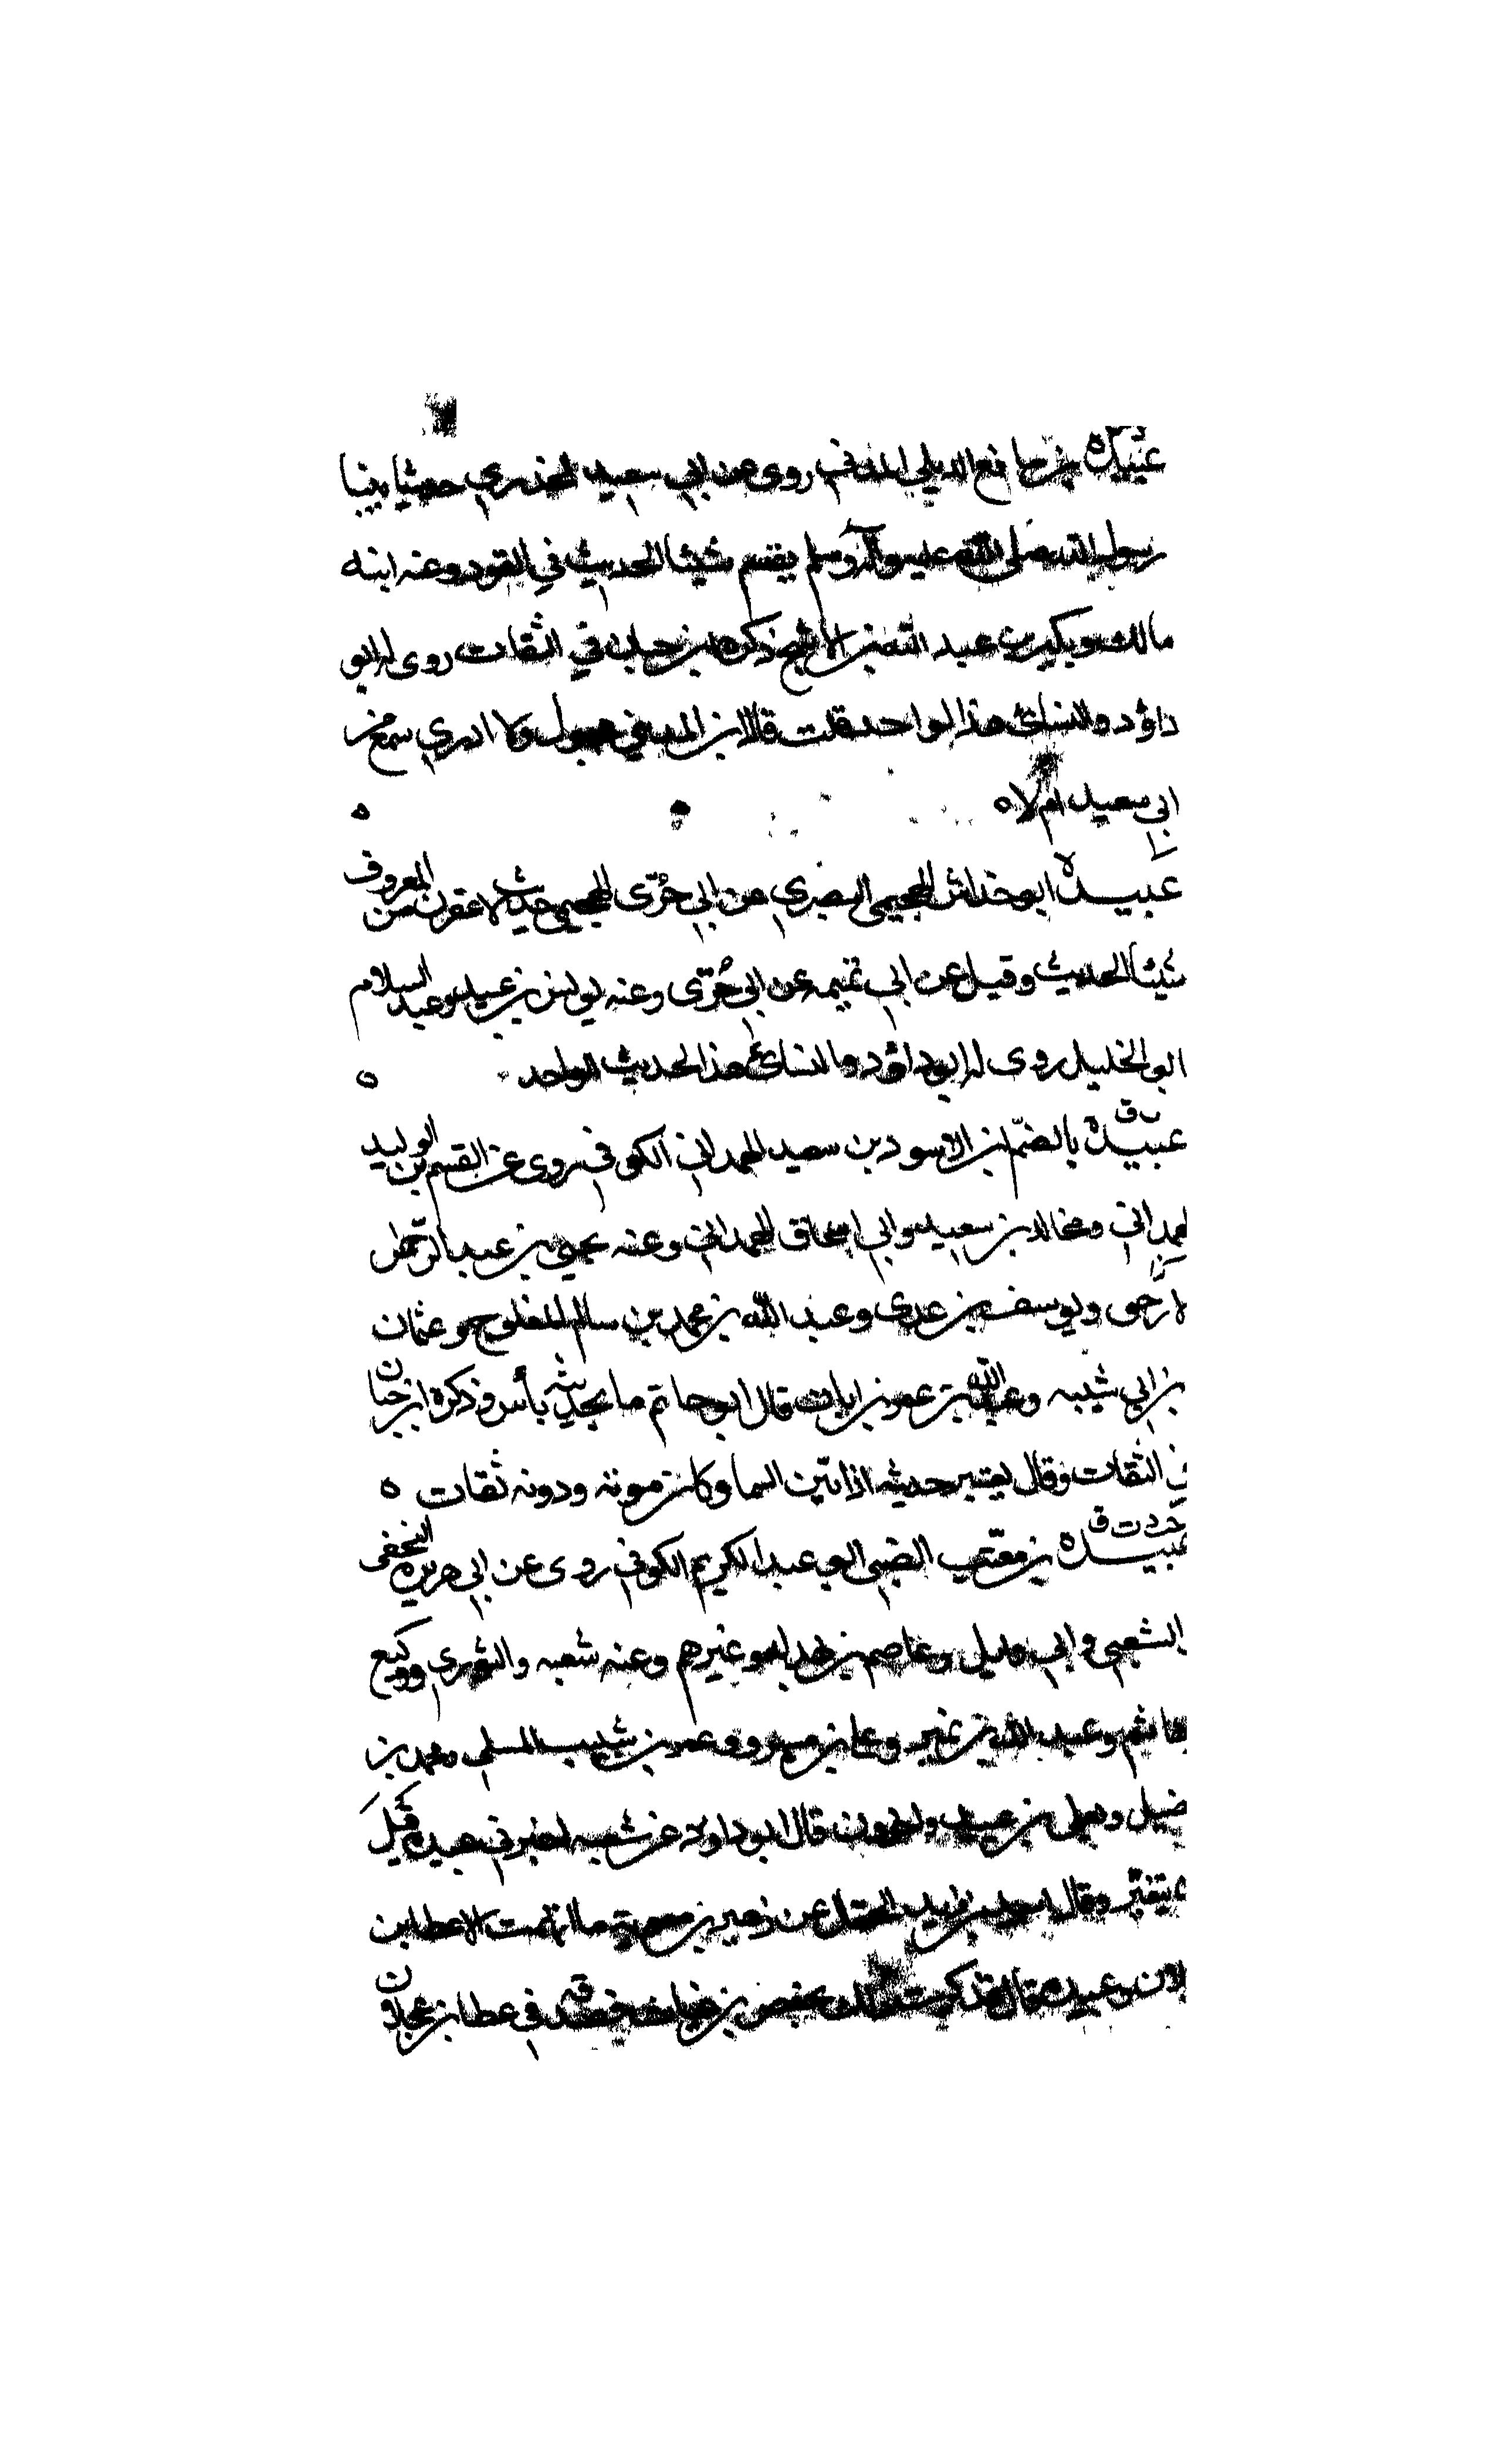 عبيدة بن مسافع الديلي المدني روى عن ابي سعيد الخدري حديثا بينا
رسول الله صلى الله عليه وآله وسلم يقسم شيئا الحديث في القود وعنه ابنه
مالك وبكير بن عبد الله بن الاشج ذكره ابن حبان في الثقات روى له ابو
داؤد والنسائ هذا الواحد قلت قال ابن المديني مجهول ولا ادري سمع من
ابي سعيد ام لا ه
عبيدة ابو خداش الهجيمي البصري عن ابي جُرّى الهجيمي حديث لا تحقرن من المعروف
شيئا الحديث وقيل عن ابي تميمه عن ابي جُرّى وعنه يونس بن عبيد وعبد السلام
ابو الخليل روى له ابو داؤد والنسائ هذا الحديث الواحد ه
ت ق
عبيدة بالضمّ ابن الاسود بن سعيد الهمداني الكوفي روى عن القسم بن الوليد
لهمداني ومخالد بن سعيد وابي اسحاق الهمداني وعنه يحيى بن عبد الرحمن
لارحبى ويوسف بن عدى وعبد الله بن محمد بن سالم المفلوج وعثمان
بن ابي شيبه وعبد الله بن عمر بن ابان قال ابو حاتم ما بحديثه بأس وذكره ابن حبان
في الثقات وقال يعتبر حديثه اذا بيّن السماع وكان من فوقه ودونه ثقات ه
خد ت ق
عبيدة بن معتّب الضبى ابو عبد الكريم الكوفي روى عن ابراهيم النخعى
الشعبي وابي وايل وعاصم بن بهدله وغيرهم وعنه شعبه والثوري ووكيع
هاشم وعبد الله بن نمير وعلي بن مسهر وعمر بن شبيب المسلي ومحمد بن
ضيل ويعلى بن عبيد واخرون قال ابو داود عن شعبه اخبرني عبيده قبل
يتغيّر وقال عن زهير بن معاوية ما اتهمت الا عطا بن
لان وعبيده قال فذكرت ذلك لحفص بن غياث فصدقه في عطا بن عجلان